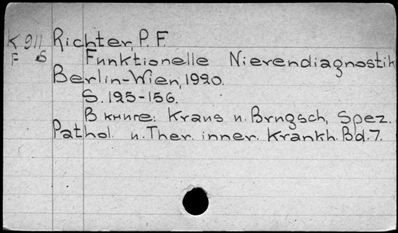 K 911 Richter, P. F.
F S Funktionelle Nierendiagnostik
Berlin-Wien, 1920.
S. 125-156.
В книге: Kraus u. Brugsch, Spez.
Pathol. u. Ther. inner. Krankh. Bd. 7.